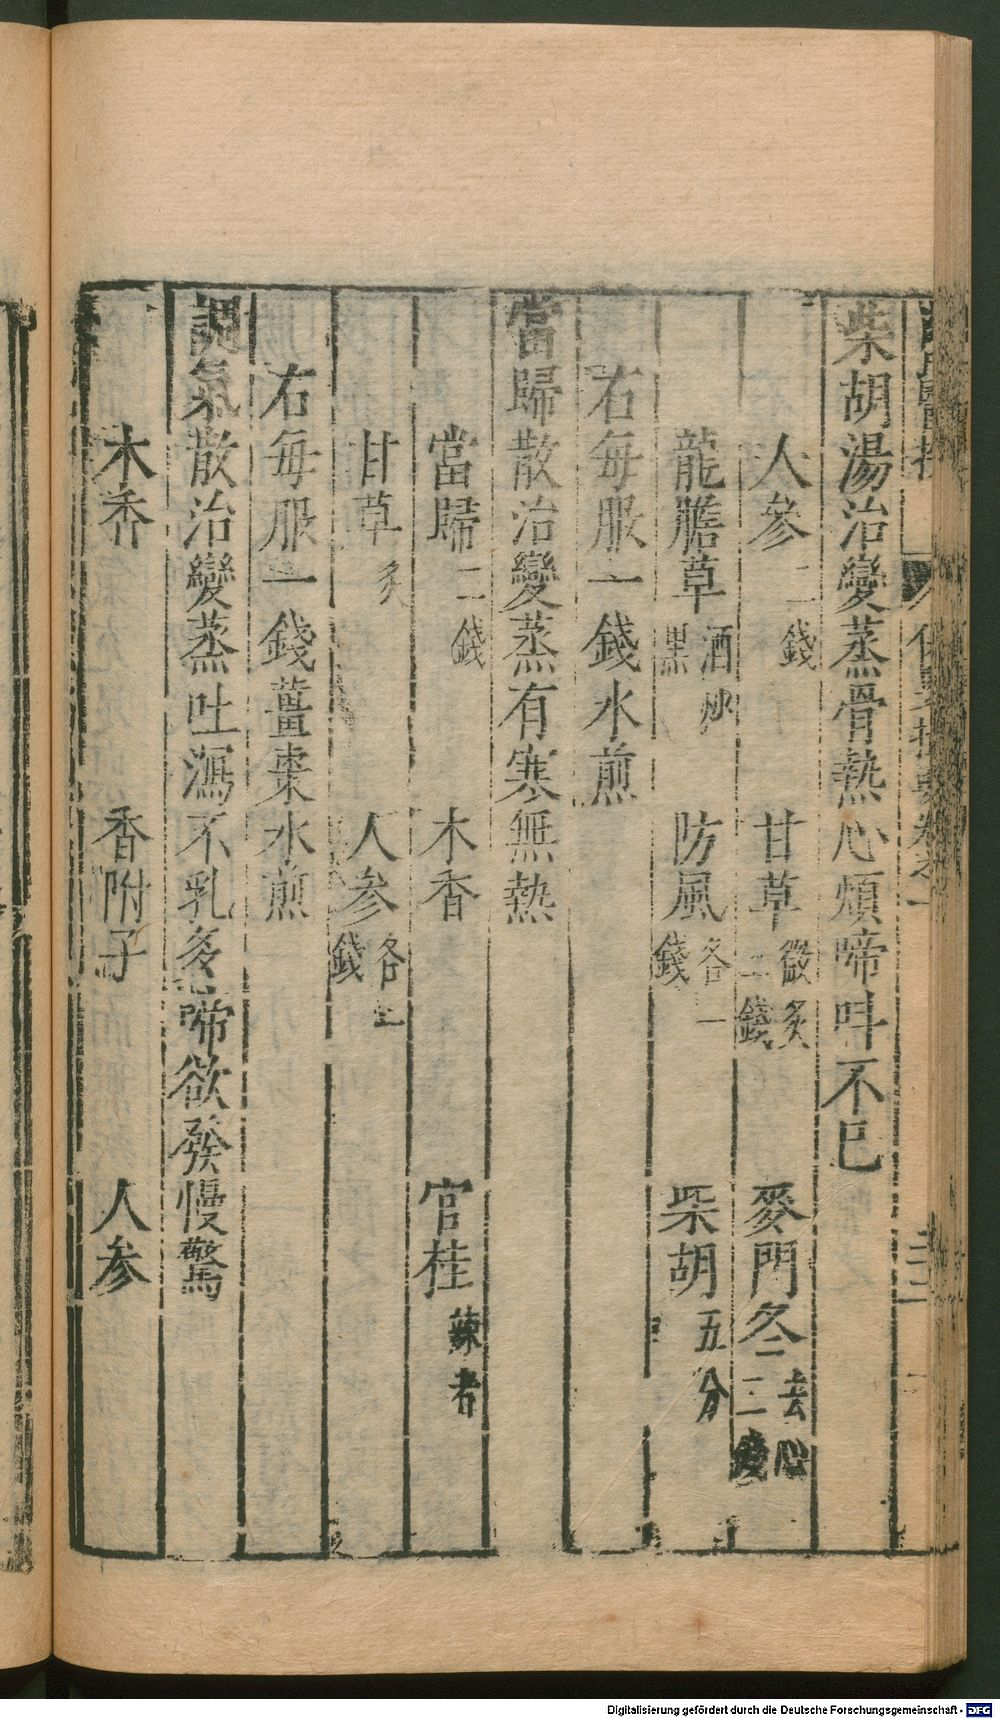 柴胡湯治變蒸骨熱心煩啼呌不已
人參二錢 甘草微炙二錢 麥門冬去心二錢
龍膽草酒炒黑 防風各一錢 柴胡五分
右每服一錢水煎
當歸散治變蒸有寒無熱
當歸二錢 木香 官桂辣者
甘草炙 人參各一錢
右每服一錢薑棗水煎
調氣散治變蒸吐瀉不乳多啼欲發慢驚
木香 香附子 人參
Digitalisierung gefördert durch die Deutsche Forschungsgemeinschaft - DFG